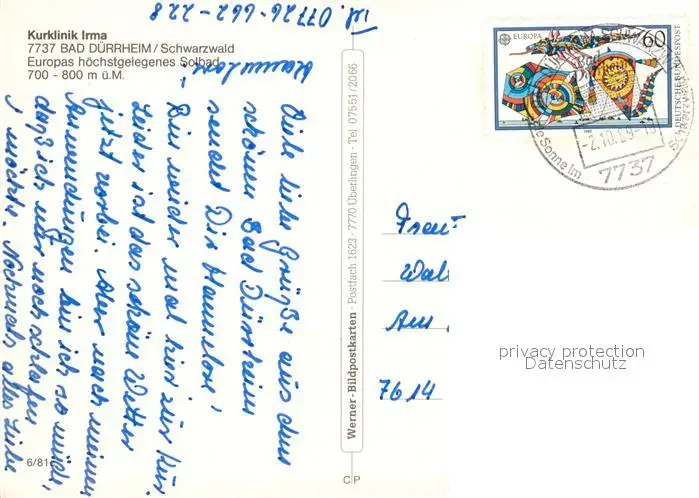 Tel. 07726-662-228
Kurklinik Irma
7737 BAD DÜRRHEIM / Schwarzwald
Europas höchstgelegenes Solbad
700 - 800 m ü.M.
Viele liebe Grüße aus dem
schönen Bad Dürrheim
sendet Dir Hannelore,
Bin wieder mal hier zur Kur.
Leider ist das schöne Wetter
jetzt vorbei. Aber nach meinen
Anwendungen bin ich so müde,
daß ich nur noch schlafen
möchte. Nochmals alles Liebe
Hannelore
6/81
Werner-Bildpostkarten · Postfach 1623 · 7770 Überlingen · Tel. 07551/2066
C P
EUROPA
60
DEUTSCHE BUNDESPOST
-2.10.89-
Sonne im
7737
Frau
Am
7614
privacy protection
Datenschutz